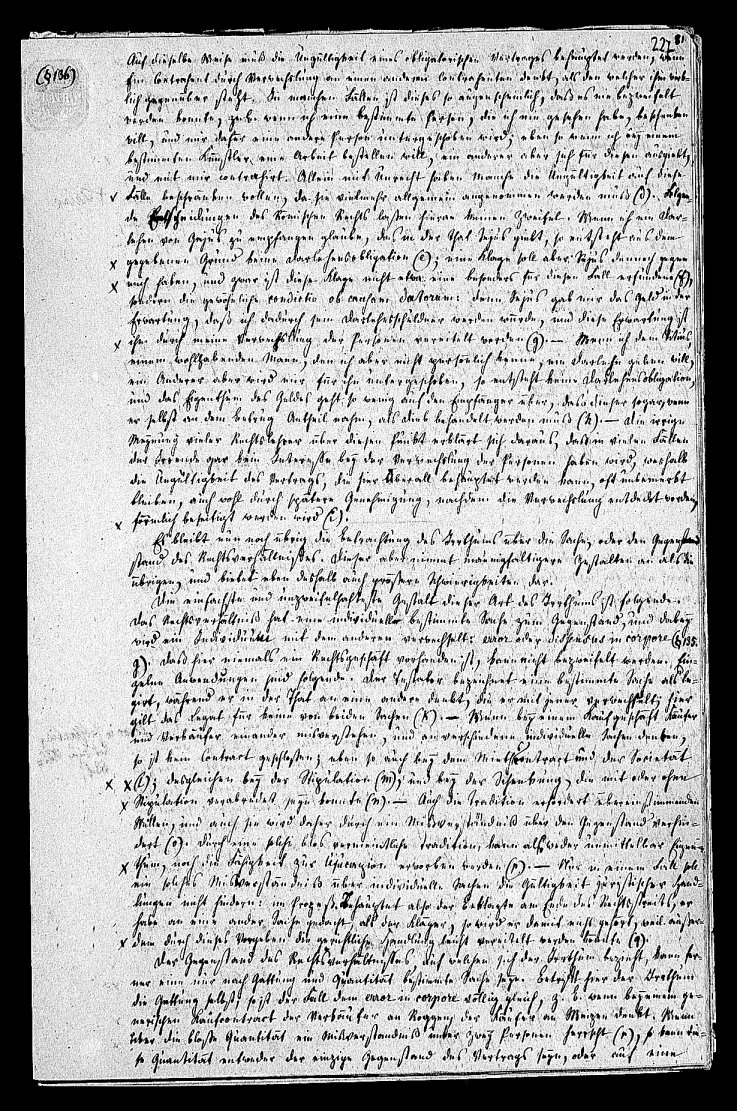 227 81
(§ 136)
Auf dieselbe Weise muß die Ungültigkeit eines obligatorischen Vertrages behauptet werden, wenn
Ein Contrahent durch Verwechslung an einen anderen Contrahenten denkt, als den welcher ihm wirk-
lich gegenüber steht. In manchen Fällen ist dieses so augenscheinlich, daß es nie bezweifelt
werden konnte, z. B. wenn ich eine bestimmte Person, die ich nie gesehen habe, beschenken
will, und mir dafür eine andere Person untergeschoben wird; eben so wenn ich bey einem
bestimmten Künstler eine Arbeit bestellen will, ein anderer aber sich für diesen ausgiebt,
und mit mir contrahirt. Allein mit Unrecht haben Manche die Ungültigkeit auf diese
Fälle beschränken wollen, da sie vielmehr allgemein angenommen werden muß (d). Folgen-
de Entscheidungen des Römischen Rechts lassen hieran keinen Zweifel. Wenn ich ein Dar-
lehen von Gajus zu empfangen glaube, das in der That Sejus giebt, so entsteht aus dem
gegebenen Grund keine Darlehensobligation (e); eine Klage soll aber Sejus dennoch gegen
mich haben, und zwar ist diese Klage nicht etwa eine besonders für diesen Fall erfundene (f),
sondern die gewöhnliche condictio ob causam datorum: denn Sejus gab mir das Geld in der
Erwartung, daß ich dadurch sein Darlehensschuldner werden würde, und diese Erwartung ist
ihm durch meine Verwechslung der Personen vereitelt worden (g). — Wenn ich dem Titius
einem wohlhabenden Mann, den ich aber nicht persönlich kenne, ein Darlehn geben will,
ein Anderer aber wird mir für ihn untergeschoben, so entsteht keine Darlehensobligation,
und das Eigenthum des Geldes geht so wenig auf den Empfänger über, daß dieser sogar, wenn
er selbst an dem Betrug Antheil nahm, als Dieb behandelt werden muß (h). — Die irrige
Meynung vieler Rechtslehrer über diesen Punkt erklärt sich daraus, daß in vielen Fällen
der Irrende gar kein Interesse bey der Verwechslung der Personen haben wird, weshalb
die Ungültigkeit des Vertrags, die hier überall behauptet werden kann, oft unbemerkt
bleiben, auch wohl durch spätere Genehmigung, nachdem die Verwechslung entdeckt worden,
förmlich beseitigt werden wird (i).
Es bleibt nun noch übrig die Betrachtung des Irrthums über die Sache, oder den Gegen-
stand des Rechtsverhältnisses. Dieser aber nimmt mannigfaltigere Gestalten an als die
übrigen, und bietet eben deshalb auch größere Schwierigkeiten dar.
Die einfachste und unzweifelhafteste Gestalt dieser Art des Irrthums ist folgende.
Das Rechtsverhältniß hat eine individuell bestimmte Sache zum Gegenstand, und dabey
wird ein Individuum mit dem anderen verwechselt: error oder dissensus in corpore (§ 135.
g). Daß hier niemals ein Rechtsgeschäft vorhanden ist, kann nicht bezweifelt werden. Ein-
zelne Anwendungen sind folgende. Der Testator bezeichnet eine bestimmte Sache als le-
girt, während er in der That an eine andere denkt, die er mit jener verwechselt; hier
gilt das Legat für keine von beiden Sachen (k). — Wenn bey einem Kaufgeschäft Käufer
und Verkäufer einander misverstehen, und an verschiedene individuelle Sachen denken,
so ist kein Contract geschlossen; eben so auch bey dem Miethcontract und der Societät
(l); desgleichen bey der Stipulation (m); und bey der Schenkung, die mit oder ohne
Stipulation verabredet seyn konnte (n). — Auch die Tradition erfordert übereinstimmenden
Willen, und auch sie wird daher durch ein Misverständniß über den Gegenstand verhin-
dert (o). durch eine solche blos vermeintliche Tradition, kann also weder unmittelbar Eigen-
thum, noch die Fähigkeit zur Usucapion erworben werden (p). — Nur in einem Fall soll
ein solches Misverständniß über individuelle Sachen die Gültigkeit juristischer Hand-
lungen nicht hindern: im Prozeß. Behauptet also der Beklagte am Ende des Rechtsstreits, er
habe an eine andere Sache gedacht, als der Kläger, so wird er damit nicht gehört, weil außer-
dem durch dieses Vorgeben die gerichtliche Handlung leicht vereitelt werden könnte (q).
Der Gegenstand des Rechtsverhältnisses, auf welchen sich der Irrthum bezieht, kann fer-
ner eine nur nach Gattung und Quantität bestimmte Sache seyn. Betrifft hier der Irrthum
die Gattung selbst, so ist der Fall dem error in corpore völlig gleich, z. B. wenn bey einem ge-
nerischen Kaufcontract der Verkäufer an Roggen, der Käufer an Weizen denkt. Wenn
über die bloße Quantität ein Misverständniß unter zwey Personen herrscht (r), so kann die-
se Quantität entweder der einzige Gegenstand des Vertrags seyn, oder auf eine